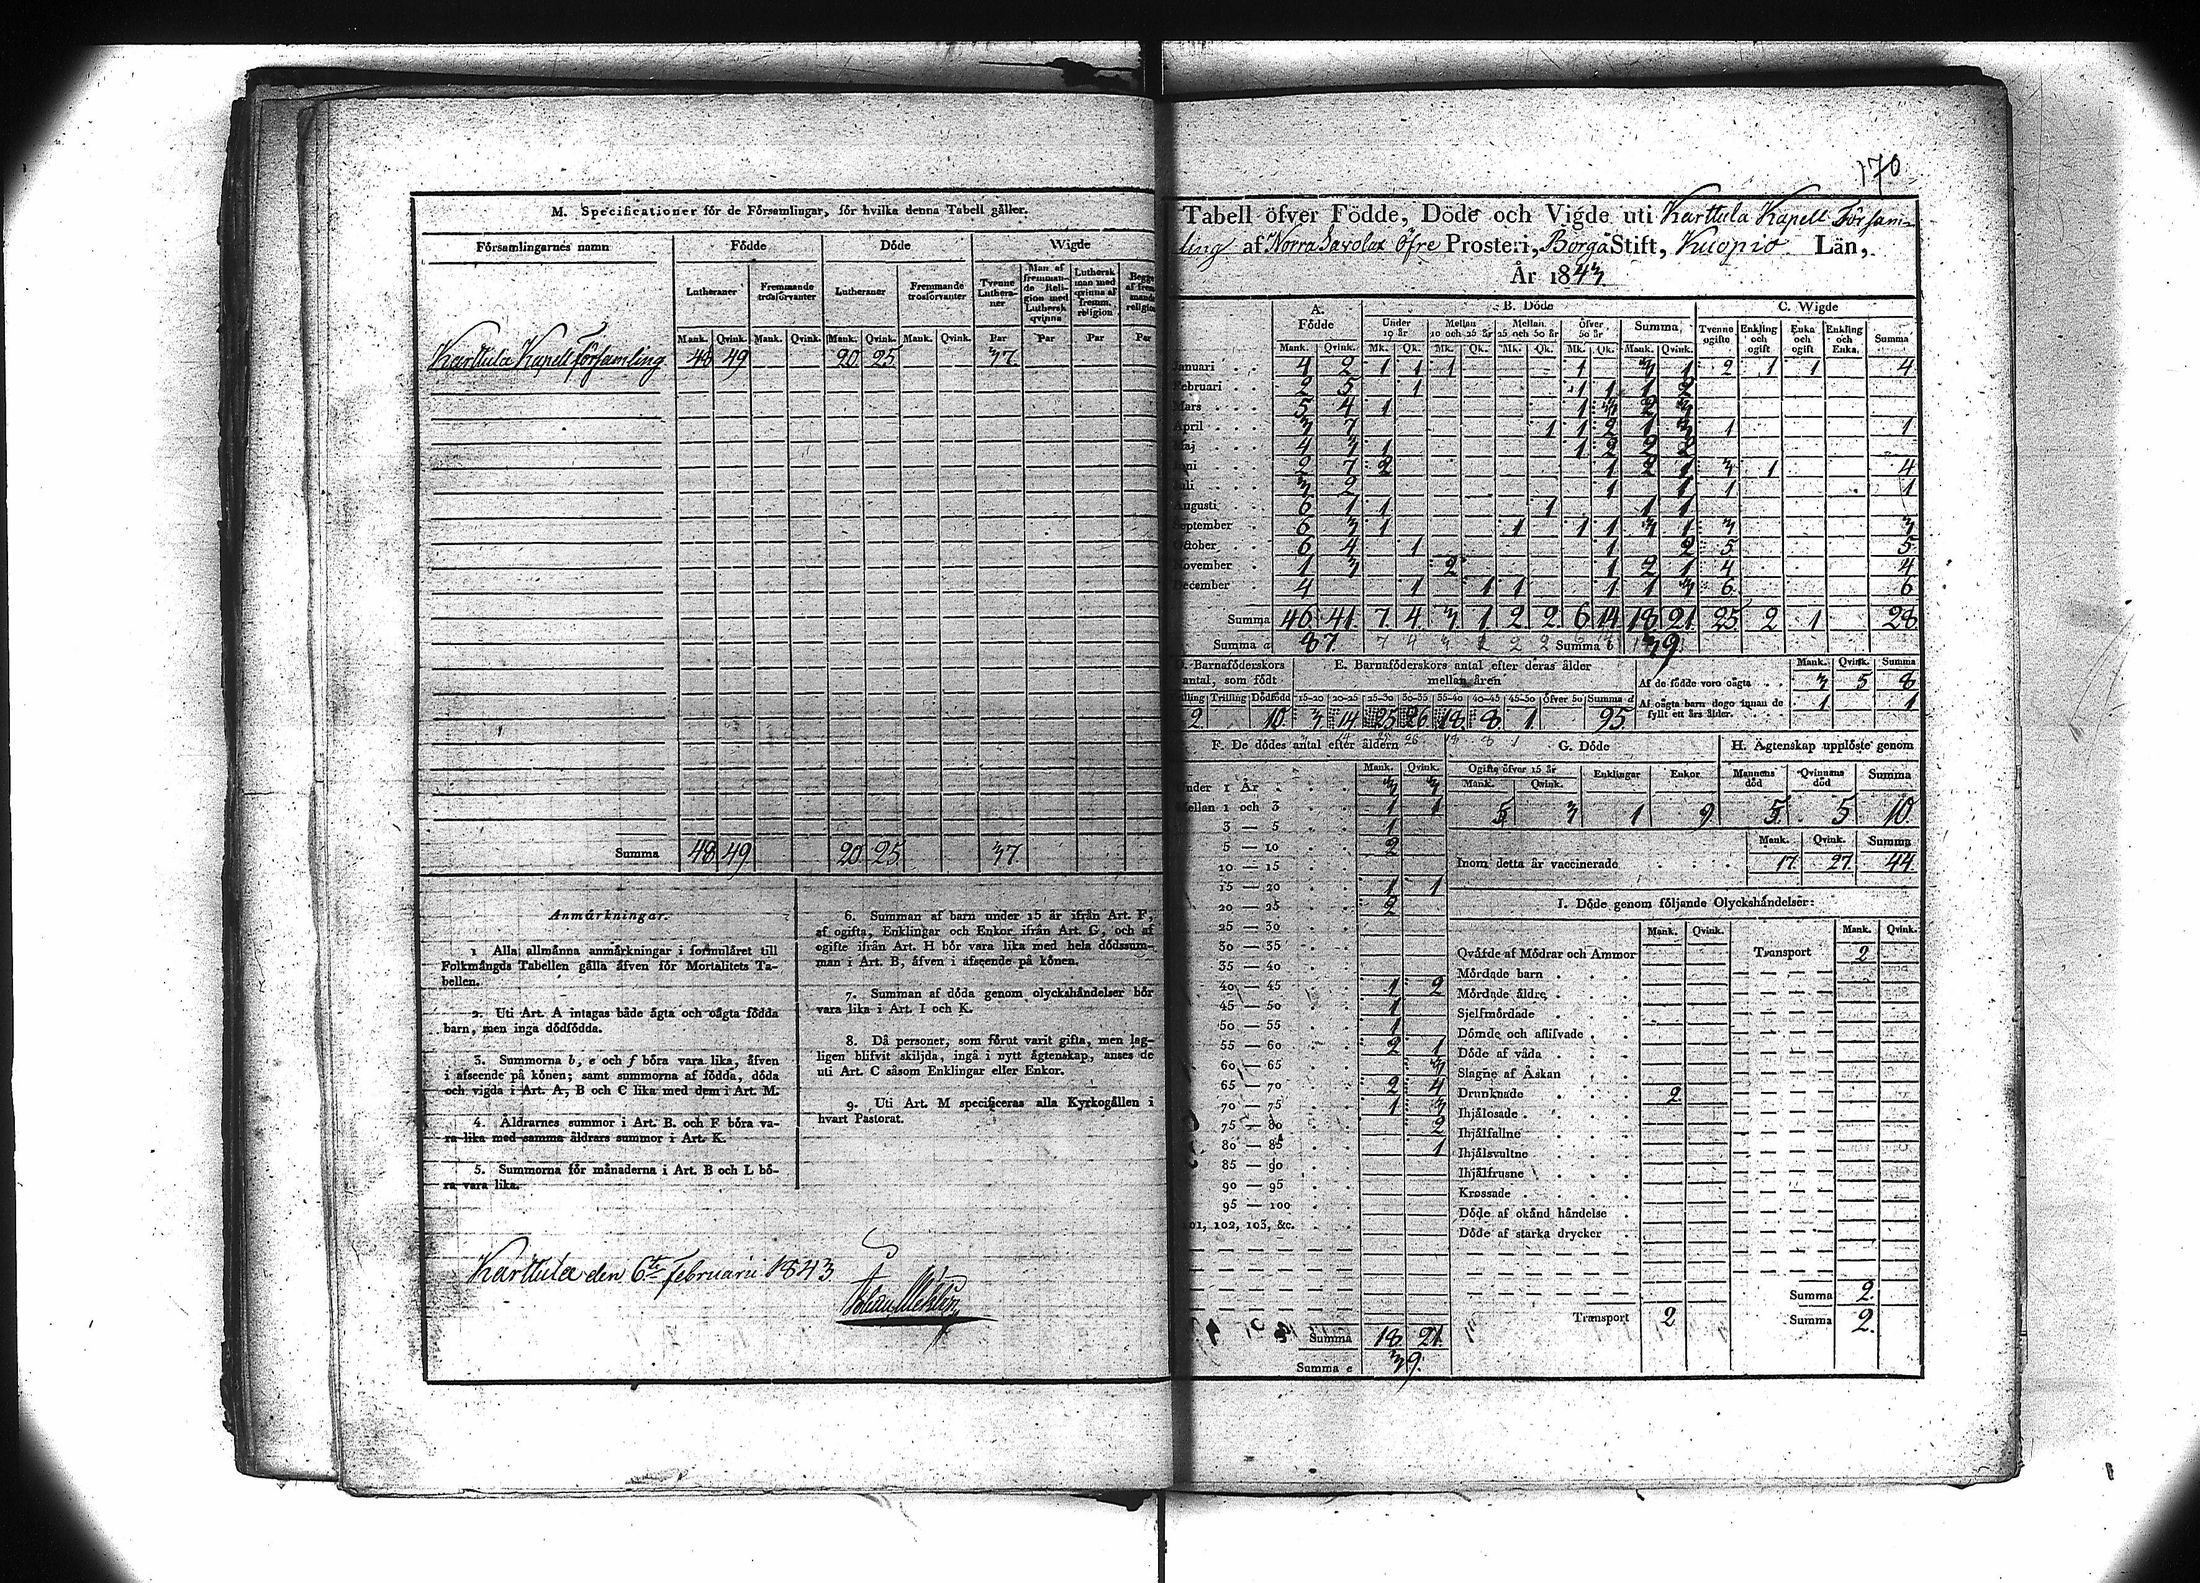 M. Specificationer för de Församlingar, för hvilka denna Tabell gäller.
Församlingarnes namn Födde Döde Wigde
Lutheraner Fremmande trosförvanter Lutheraner Fremmande trosförvanter Tvenne Lutheraner Man af fremmande Religion med Luthersk qvinna Luthersk man med qvinna af fremm. religion
Mank. Qvink. Mank. Qvink. Mank. Qvink. Mank. Qvink. Par Par Par Par
Karttula Kapell Församling 48 49 20 25 37
Summa 48 49 20 25 37
Anmärkningar.
1. Alla allmänna anmärkningar i formuläret till
Folkmängds Tabellen gälla äfven för Mortalitets Ta-
bellen.
2. Uti Art. A intagas både ägta och oägta födda
barn, men inga dödfödda.
3. Summorna b, e och f böra vara lika, äfven
i afseende på könen; samt summorna af födda, döda
och vigda i Art. A, B och C lika med dem i Art. M.
4. Åldrarnes summor i Art. B. och F böra va-
ra lika med samma åldrars summor i Art. K.
5. Summorna för månaderna i Art. B och L bö-
ra vara lika.
6. Summan af barn under 15 år ifrån Art. F,
af ogifta, Enklingar och Enkor ifrån Art. G, och af
ogifte ifrån Art. H bör vara lika med hela dödssum-
man i Art. B, äfven i afseende på könen.
7. Summan af döda genom olyckshändelser bör
vara lika i Art. I och K.
8. Då personer, som förut varit gifta, men lag-
ligen blifvit skiljda, ingå i nytt ägtenskap, anses de
uti Art. C såsom Enklingar eller Enkor.
9. Uti Art. M specificeras alla Kyrkogällen i
hvart Pastorat.
Karttula den 6te Februarii 1843
170
Tabell öfver Födde, Döde och Vigde uti Karttula Kapell Försam-
ling af Norra Savolax Öfre Prosteri, Borgå Stift, Kuopio Län,
År 1843
A. Födde B. Döde C. Wigde
Under 10 år Mellan 10 och 25 år Mellan 25 och 50 år Öfver 50 år Summa Tvenne ogifte Enkling och ogift Enka och ogift Enkling och Enka Summa
Mank. Qvink. Mk. Qk. Mk. Qk. Mk. Qk. Mk. Qk. Mank. Qvink.
Januari 4 2 1 1 1 1 3 1 2 1 1 4
Februari 2 5 1 1 1 1 2
Mars 5 4 1 1 3 2 3
April 3 7 1 1 2 1 3 1 1
Maj 4 3 1 1 2 2 2
Juni 2 7 2 1 2 1 3 1 4
Juli 3 2 1 1 1 1
Augusti 6 1 1 1 1 1
September 6 3 1 1 1 1 3 1 3 3
October 6 4 1 1 2 5 5
November 1 3 2 1 2 1 4 4
December 4 1 1 1 1 1 3 6 6
Summa 46 41 7 4 3 1 2 2 6 14 18 21 25 2 1 28
Summa a 87 Summa b 39
D. Barnaföderskors antal, som födt E. Barnaföderskors antal efter deras ålder mellan åren Mank. Qvink. Summa
Af de födde voro oägta 3 5 8
Tvilling Trilling Dödfödd 15-20 20-25 25-30 30-35 35-40 40-45 45-50 Öfver 50 Summa d
Af oägta barn dogo innan de fyllt ett års ålder. 1 1
2 10 3 14 25 26 18 8 1 95
F. De dödes antal efter åldern G. Döde H. Ägtenskap upplöste genom
Mank. Qvink. Ogifte öfver 15 år Enklingar Enkor Mannens död Qvinnans död Summa
Mank. Qvink.
Under 1 År 3 3
Mellan 1 och 3 1 1
5 3 1 9 5 5 10
3 — 5 1
5 — 10 2
Mank. Qvink. Summa
Inom detta år vaccinerade 17 27 44
10 — 15
15 — 20 1 1
20 — 25 2
25 — 30
30 — 35
35 — 40
40 — 45 1 2
45 — 50 1
50 — 55 1
55 — 60 2 1
60 — 65 3
65 — 70 2 4
70 — 75 1 3
75 — 80 2
80 — 85 1
85 — 90
90 — 95
95 — 100
101, 102, 103, &c.
Summa 18 21
Summa e 39
I. Döde genom följande Olyckshändelser:
Mank. Qvink. Mank. Qvink.
Qväfde af Mödrar och Ammor Transport 2
Mördade barn
Mördade äldre
Sjelfmördade
Dömde och aflifvade
Döde af våda
Slagne af Åskan
Drunknade 2
Ihjälosade
Ihjälfallne
Ihjälsvultne
Ihjälfrusne
Krossade
Döde af okänd händelse
Döde af starka drycker
Summa 2
Transport 2 Summa 2